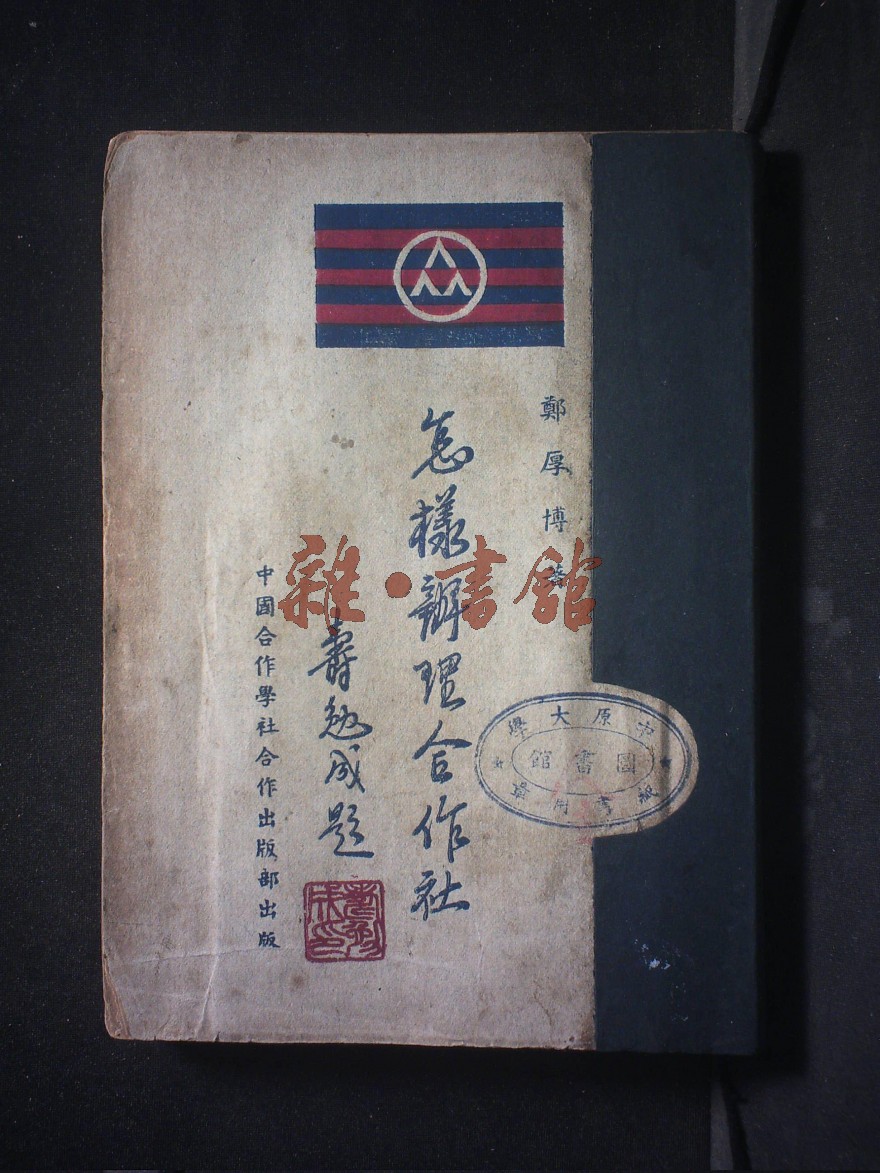 鄭厚博著
怎樣辦理合作社
壽勉成題
壽勉成印
中國合作學社合作出版部出版
雜·書館
中原大學
圖書館